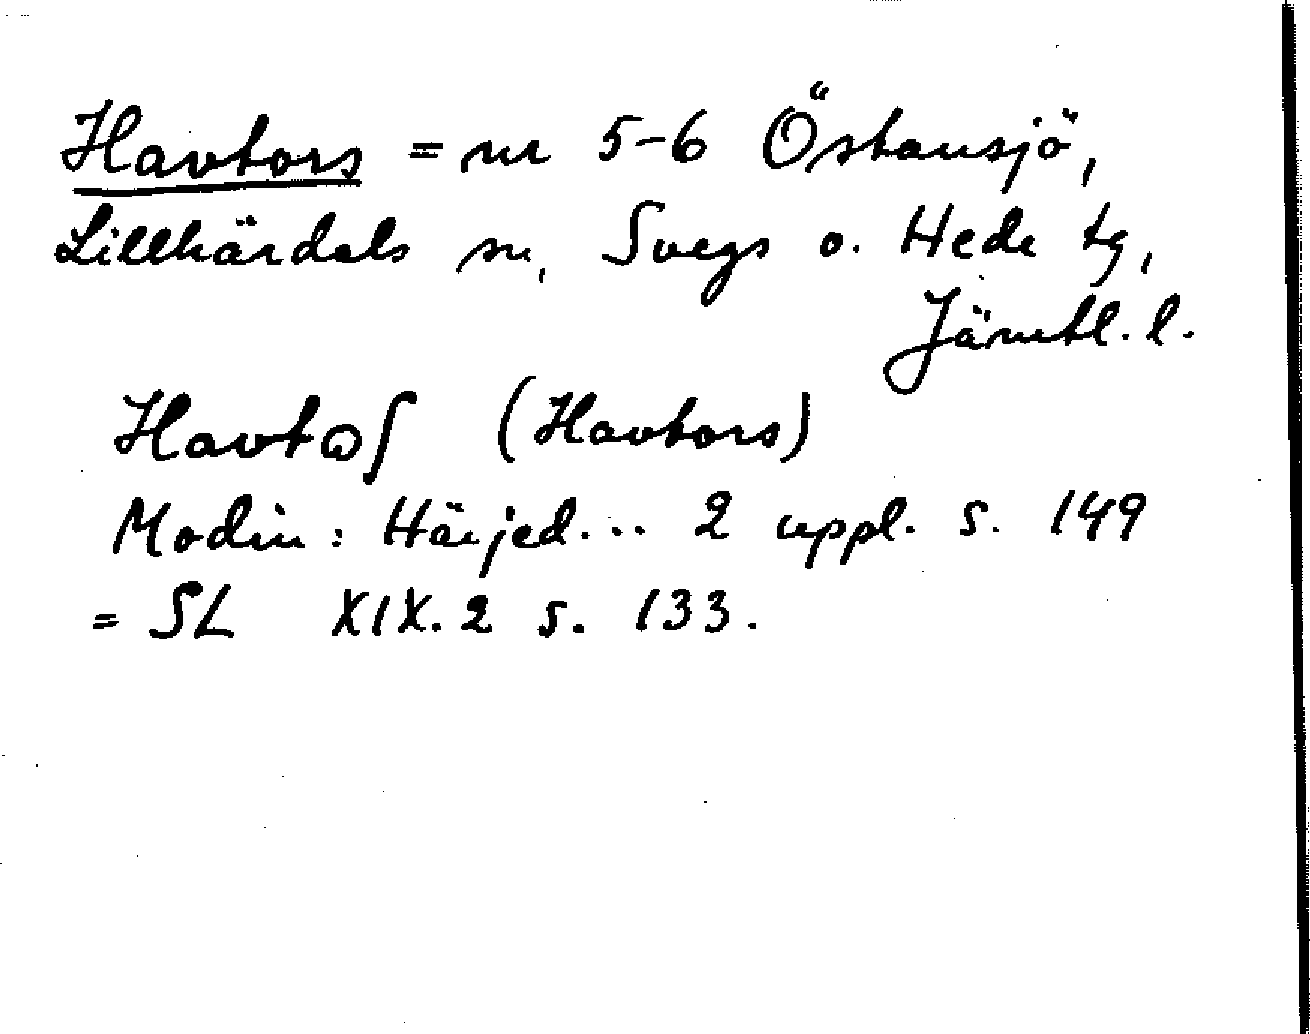 Havtors = nr 5-6 Östansjö,
Lillhärdals sn, Svegs o. Hede tg,
Jämtl. l.
Havtꭥʃ (Havtors)
Modin: Härjed... 2 uppl. s. 149
= SL XIX. 2 s. 133.